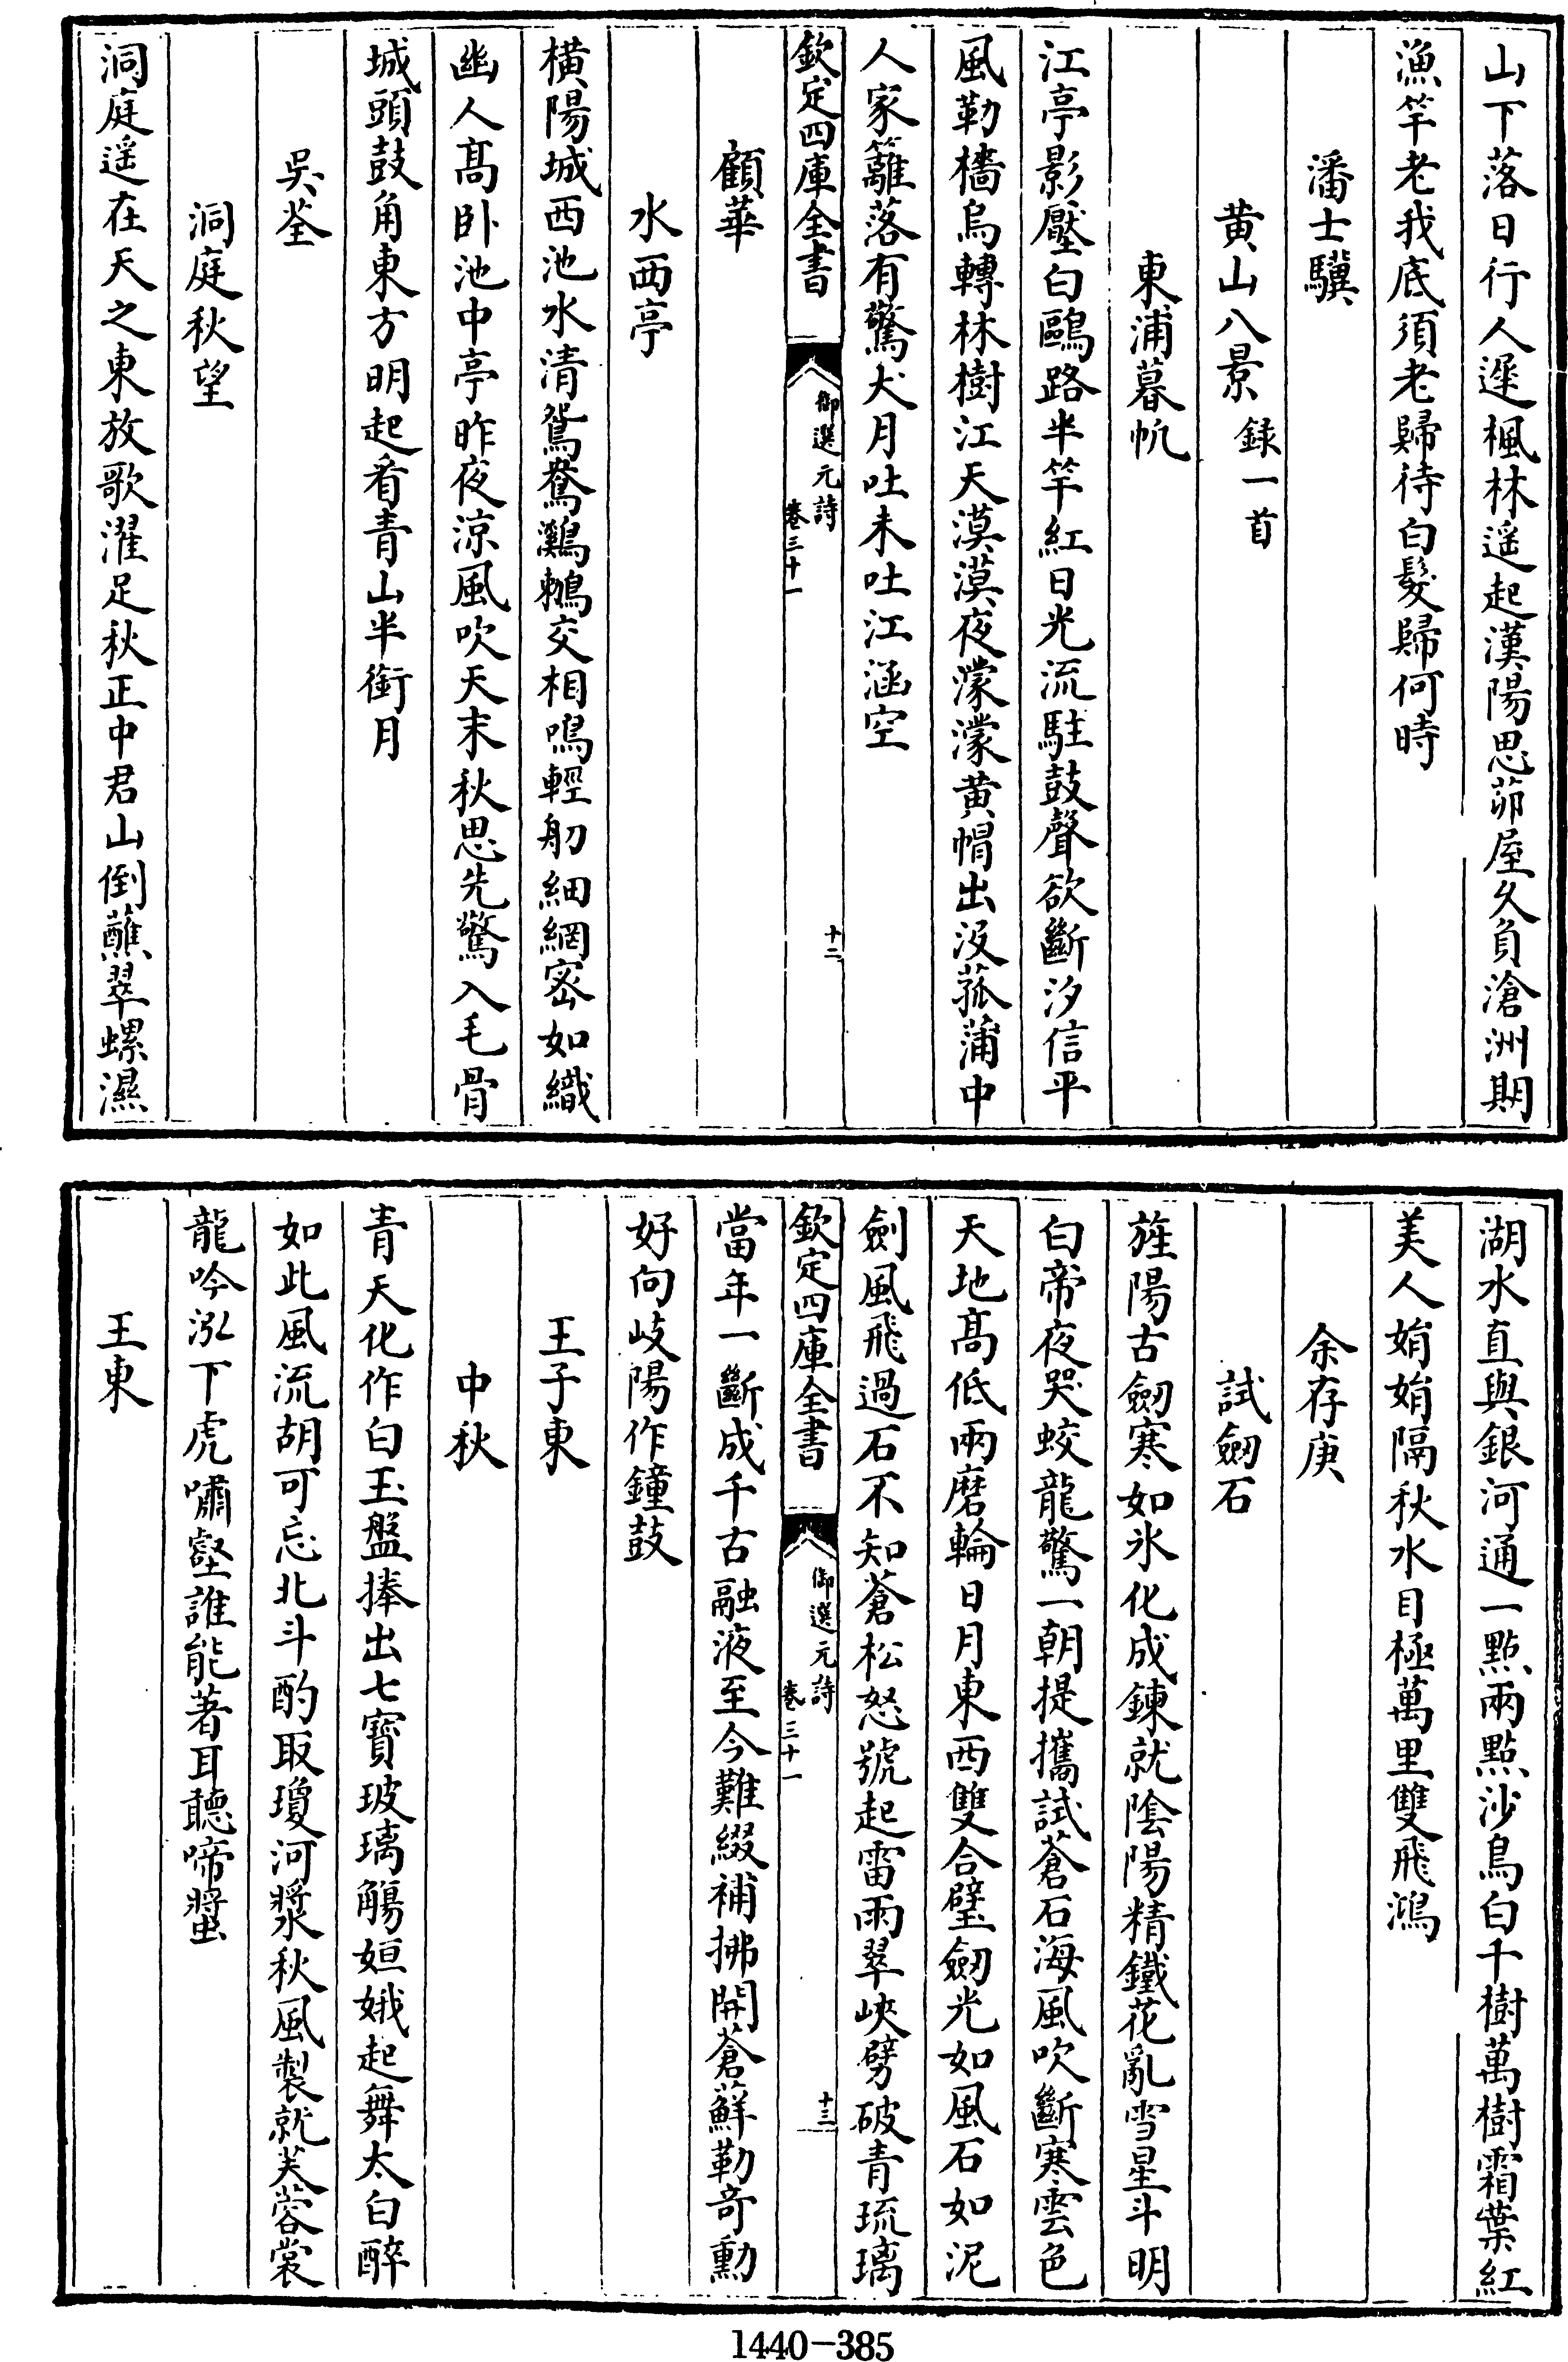 山下落日行人遲楓林遥起漢陽思茆屋久負滄洲期
漁竿老我底須老歸待白髮歸何時
潘士驥
黄山八景録一首
東浦暮帆
江亭影壓白鷗路半竿紅日光流駐鼓聲欲斷汐信平
風勒檣烏轉林樹江天漠漠夜濛濛黄帽出没菰蒲中
人家籬落有驚犬月吐未吐江涵空
欽定四庫全書
御選元詩
卷三十一
十二
顧華
水西亭
横陽城西池水清鴛鴦鸂鶒交相鳴輕舠細網宻如織
幽人髙卧池中亭昨夜涼風吹天末秋思先驚入毛骨
城頭鼓角東方明起看青山半銜月
吳荃
洞庭秋望
洞庭遥在天之東放歌濯足秋正中君山倒蘸翠螺濕
湖水直與銀河通一點兩點沙鳥白千樹萬樹霜葉紅
美人娟娟隔秋水目極萬里雙飛鴻
余存庚
試劒石
旌陽古劒寒如氷化成鍊就陰陽精鐵花亂雪星斗明
白帝夜哭蛟龍驚一朝提攜試蒼石海風吹斷寒雲色
天地髙低兩磨輪日月東西雙合璧劒光如風石如泥
劍風飛過石不知蒼松怒號起雷雨翠峽劈破青琉璃
欽定四庫全書
御選元詩
卷三十一
十三
當年一斷成千古融液至今難綴補拂開蒼蘚勒竒勳
好向岐陽作鐘鼓
王子東
中秋
青天化作白玉盤捧出七寶玻璃觴姮娥起舞太白醉
如此風流胡可忘北斗酌取瓊河漿秋風製就芙蓉裳
龍吟泓下虎嘯壑誰能著耳聽啼螀
王東
1440-385